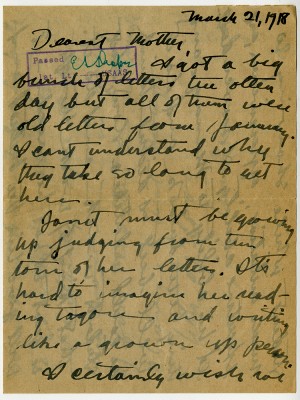 March 21, 1918
Dearest Mother,
Passed
I got a big
bunch of letters the other
day but all of them were
old letters from January.
I cant understand why
they take so long to get
here.
Janet must be growing
up judging from the
tone of her letters. Its
hard to imagine her read-
ing tagore and writing
like a grown up person.
I certainly wish we